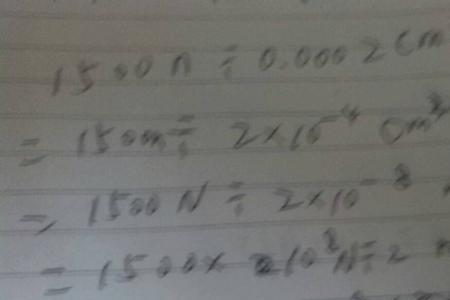 1500 n ÷ 0.0002 cm
= 150m ÷ 2×10⁻⁴ cm²
= 1500 N ÷ 2×10⁻⁸
= 1500× 10⁸ N÷2